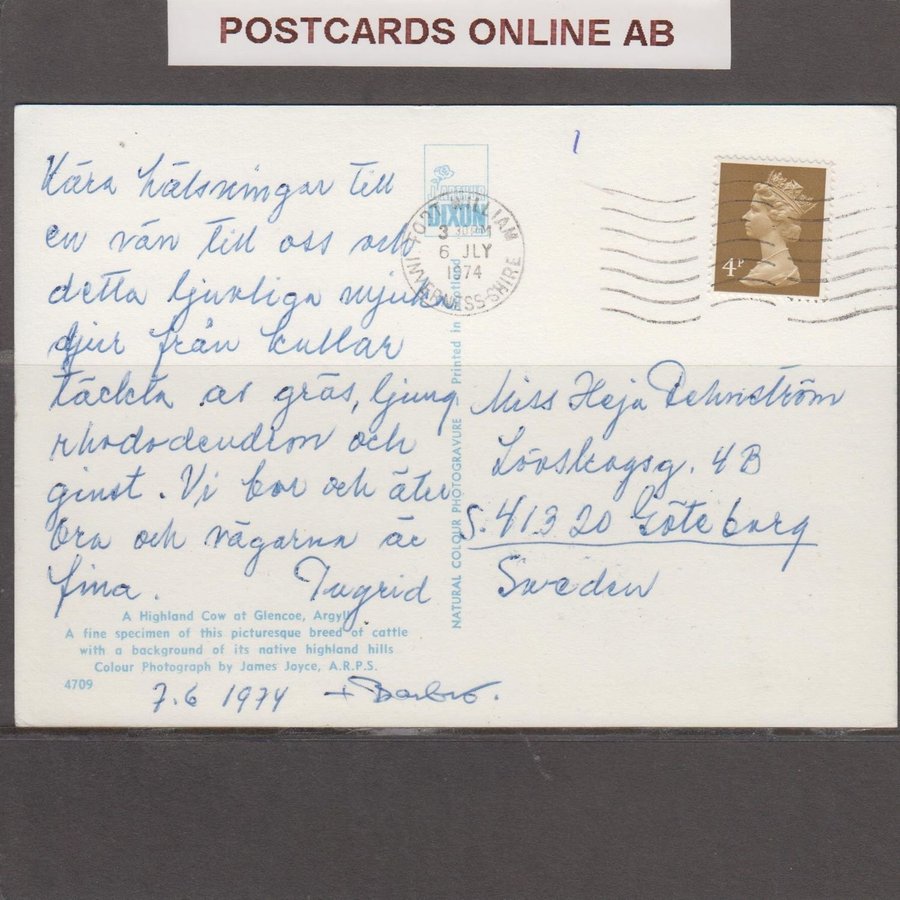 POSTCARDS ONLINE AB
1
Kära hälsningar till
en vän till oss och
detta ljuvliga mjuk
djur från kullar
täckta av gräs, ljung
rhododendron och
ginst. Vi bor och äter
bra och vägarna är
fina. Ingrid
A Highland Cow at Glencoe, Argyll
A fine specimen of this picturesque breed of cattle
with a background of its native highland hills
Colour Photograph by James Joyce, A.R.P.S.
4709
7.6 1974 + Barbro.
DIXON
NATURAL COLOUR PHOTOGRAVURE Printed in Scotland
FORT WILLIAM
3 30PM
6 JLY
1974
INVERNESS-SHIRE
4P
Miss Heja
Lövskogsg. 4B
S. 413 20 Göteborg
Sweden